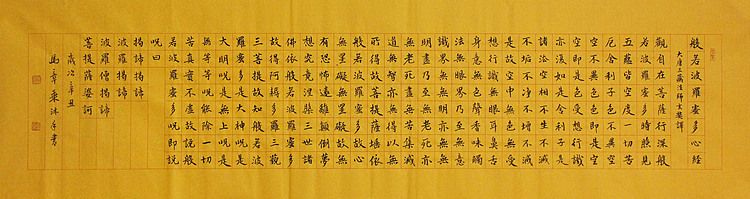 般若波羅蜜多心經
大唐三藏法師玄奘譯
觀自在菩薩行深般
若波羅蜜多時照見
五蘊皆空度一切苦
厄舍利子色不異空
空不異色色即是空
空即是色受想行識
亦復如是舍利子是
諸法空相不生不滅
不垢不淨不增不減
是故空中無色無受
想行識無眼耳鼻舌
身意無色聲香味觸
法無眼界乃至無意
識界無無明亦無無
明盡乃至無老死亦
無老死盡無苦集滅
道無智亦無得以無
所得故菩提薩埵依
般若波羅蜜多故心
無罣礙無罣礙故無
有恐怖遠離顛倒夢
想究竟涅槃三世諸
佛依般若波羅蜜多
故得阿耨多羅三藐
三菩提故知般若波
羅蜜多是大神咒是
大明咒是無上咒是
無等等咒能除一切
苦真實不虛故說般
若波羅蜜多咒即說
咒曰
揭諦揭諦
波羅揭諦
波羅僧揭諦
菩提薩婆訶
歲次辛丑
馬章乘沐手書